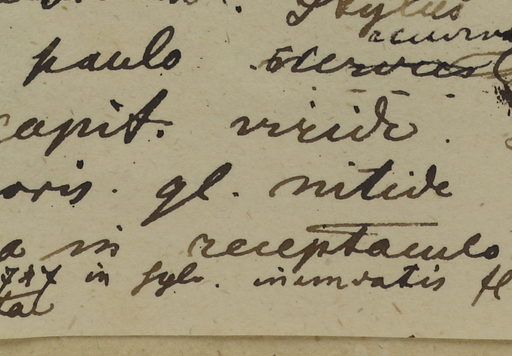 Stylus
recurva
paulo
capit. viride.
oris. gl. nitide
a in receptaculo
in sylv. inundatis fl